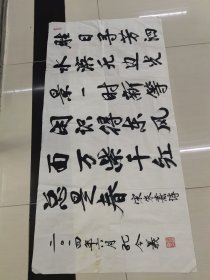 胜日寻芳泗
水滨无边光
景一时新等
闲识得东风
面万紫千红
总是春 宋朱熹诗
二〇〇四年六月孔令義